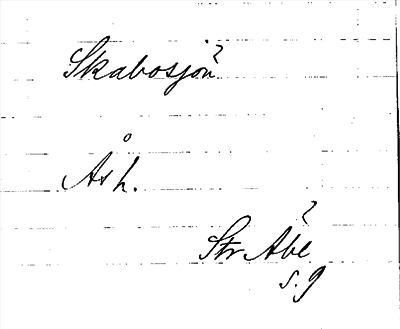 Skabosjön?
Ås h.
Str Åbe?
s. 9